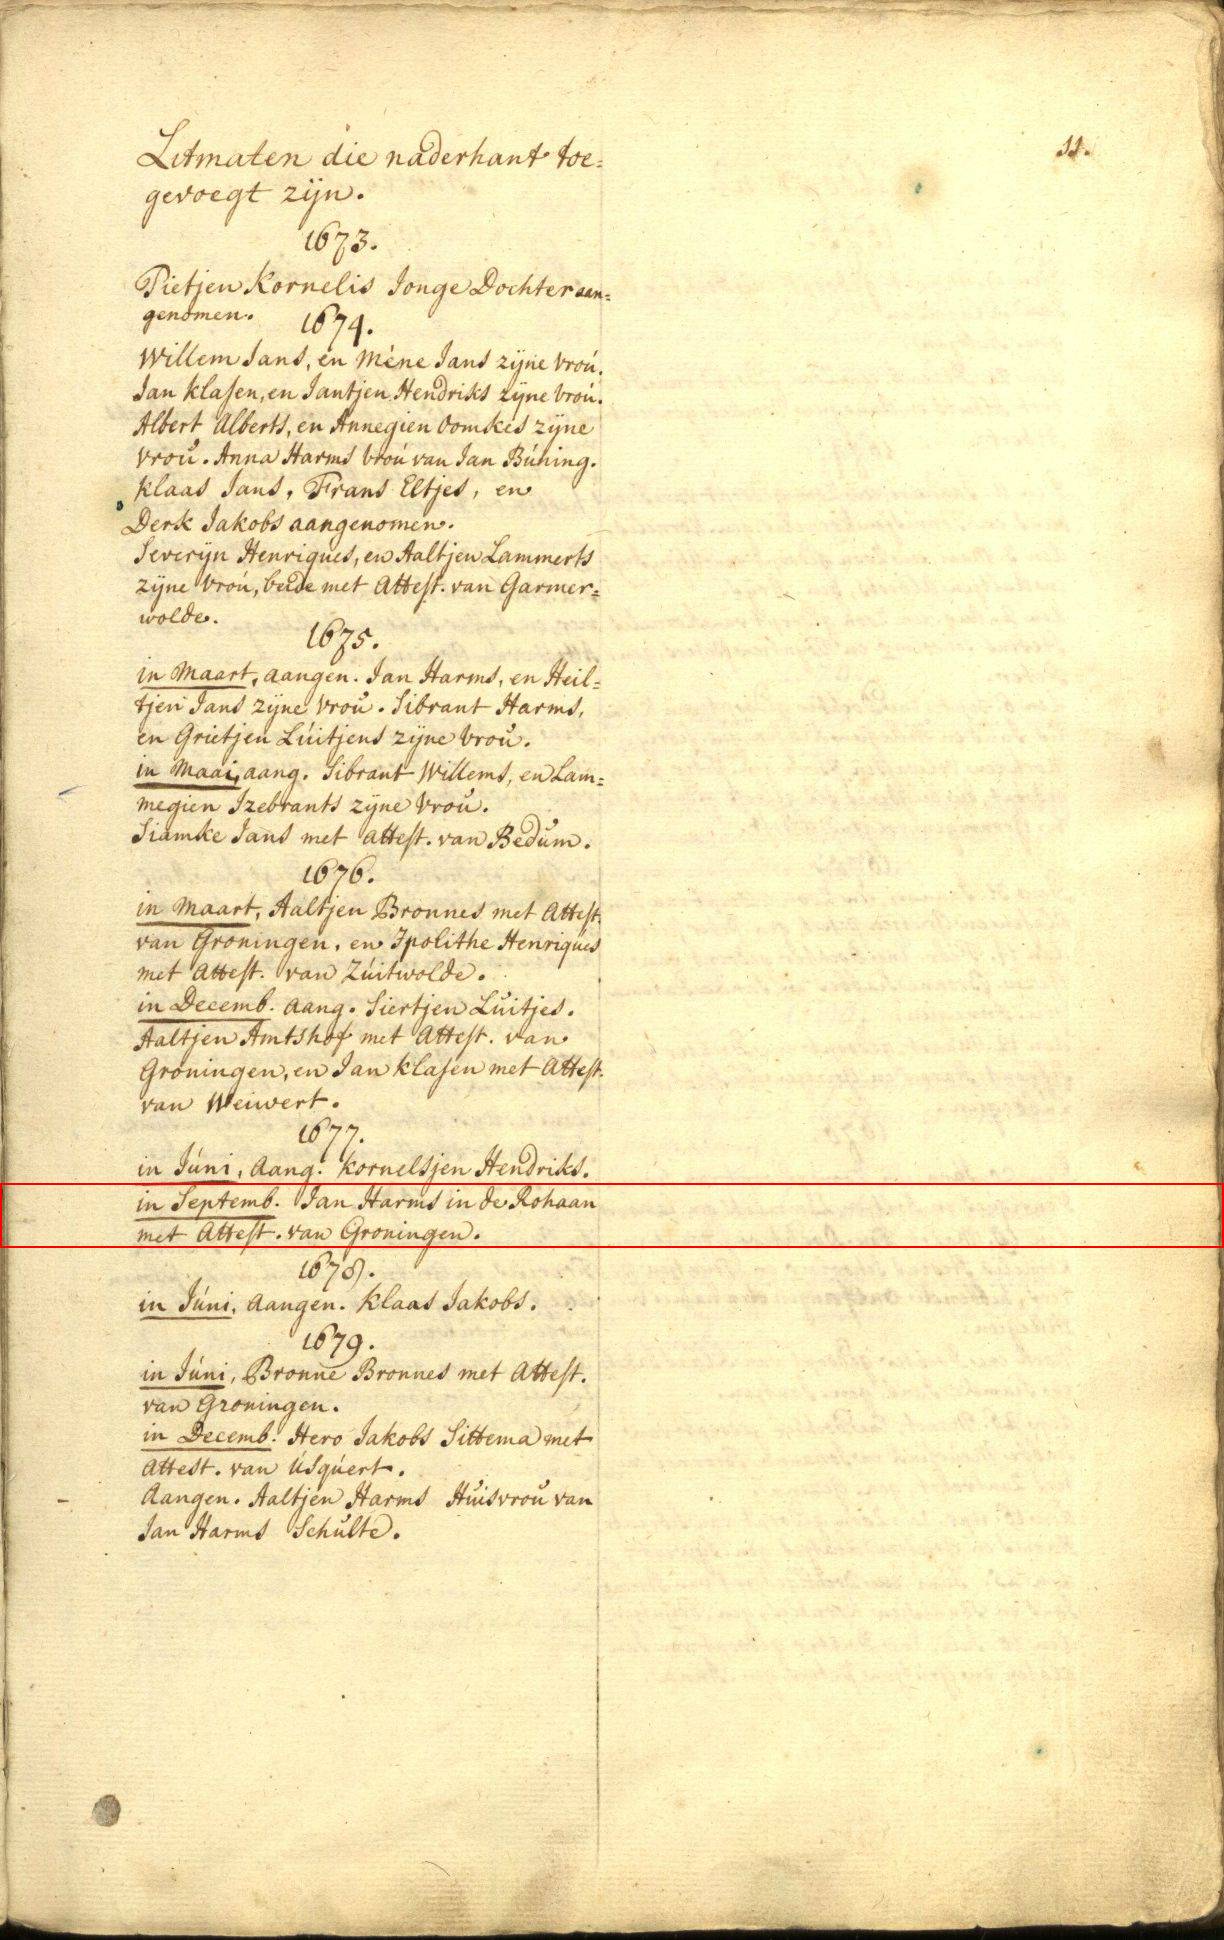 Litmaten die naderhant toe=
gevoegt zijn.
11.
1673.
Pietjen Kornelis Jonge Dochter aan=
genomen.
1674.
Willem Jans, en Mene Jans zijne vroú.
Jan Klasen, en Jantjen Hendriks zijne vroú.
Albert Alberts, en Annegien Oomkes zijne
vroŭ. Anna Harms vroú van Jan Búning.
Klaas Jans, Frans Eltjes, en
Derk Jakobs aangenomen.
Severijn Henriques, en Aaltjen Lammerts
zijne vroú, beide met Attest. van Garmer=
wolde.
1675.
in Maart, aangen. Jan Harms, en Heil=
tjen Jans zijne vroŭ. Sibrant Harms,
en Grietjen Lúitjens zijne vroŭ.
in Maai, aang. Sibrant Willems, en Lam=
megien Izebrants zijne vroŭ.
Siamke Jans met Attest. van Bedŭm.
1676.
in Maart, Aaltjen Bronnes met Attest.
van Groningen, en Ipolithe Henriqúes
met Attest. van Zúitwolde.
in Decemb. aang. Siertjen Lŭitjes.
Aaltjen Amtshof met Attest. van
Groningen, en Jan Klasen met Attest.
van Weiwert.
1677.
in Júni, aang. Kornelsjen Hendriks.
in Septemb. Jan Harms in de Rohaan
met Attest. van Groningen.
1678.
in Júni, aangen. Klaas Jakobs.
1679.
in Júni, Bronne Bronnes met Attest.
van Groningen.
in Decemb. Hero Jakobs Sittema met
Attest. van Úsqúert.
Aangen. Aaltjen Harms Hŭisvroŭ van
Jan Harms Schŭlte.